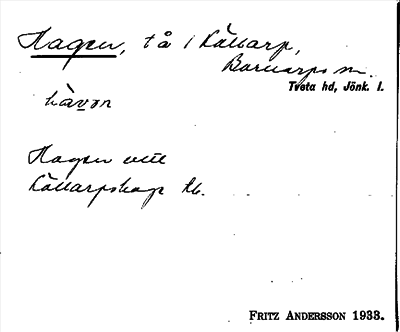 Hagen, tå i Källarp,
Barnarps sn.
Tveta hd, Jönk. l.
hàvọn
Hagen
Källarpshage
FRITZ ANDERSSON 1933.